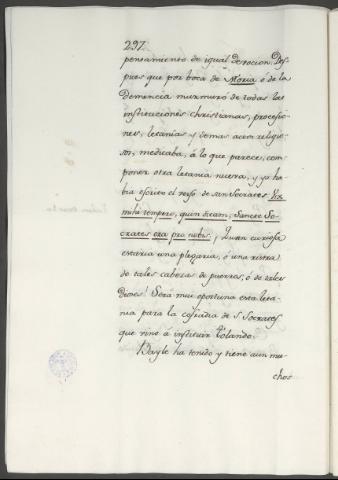 297.
pensamiento de igual devocion. Des-
pues que por boca de Moria ó de la
Demencia murmuró de todas las
instituciones christianas, procesio-
nes, letanias y demas actos religio-
sos, meditaba, á lo que parece, com-
poner otra letania nueva, y ya ha-
bia escrito el verso de san Socrates Vix
mihi tempero, quin dicam, Sancte So-
crates ora pro nobis. ¡Quan curiosa
estaria una plegaria, ó una ristra
de tales cabezas de puerros, ó de tales
dioses! Será muy oportuna esta leta-
nia para la cofradia de S. Socrates
que vino á instituir Tolando.
Bayle ha tenido y tiene aun mu-
chos